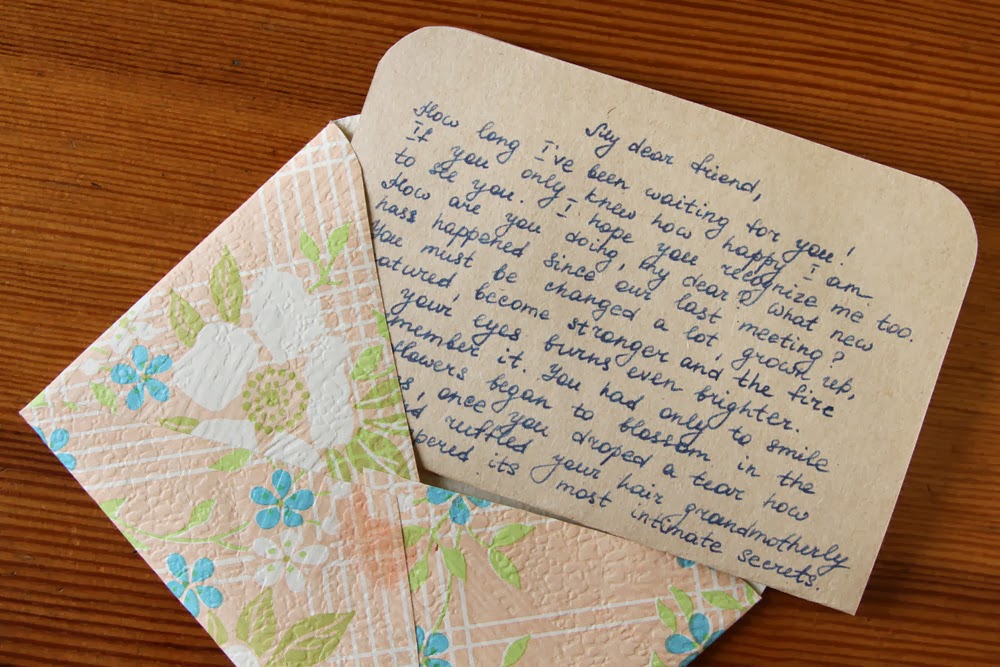 My dear friend,
How long I've been waiting for you!
If you only knew how happy I am
to see you. I hope you recognize me too.
How are you doing, my dear? What new
hass happened since our last meeting?
You must be changed a lot, grown up,
atured, become stronger and the fire
your eyes burns even brighter.
member it. You had only to smile
flowers began to blossom in the
once you droped a tear how
ruffled your hair grandmotherly
pered its most intimate secrets.